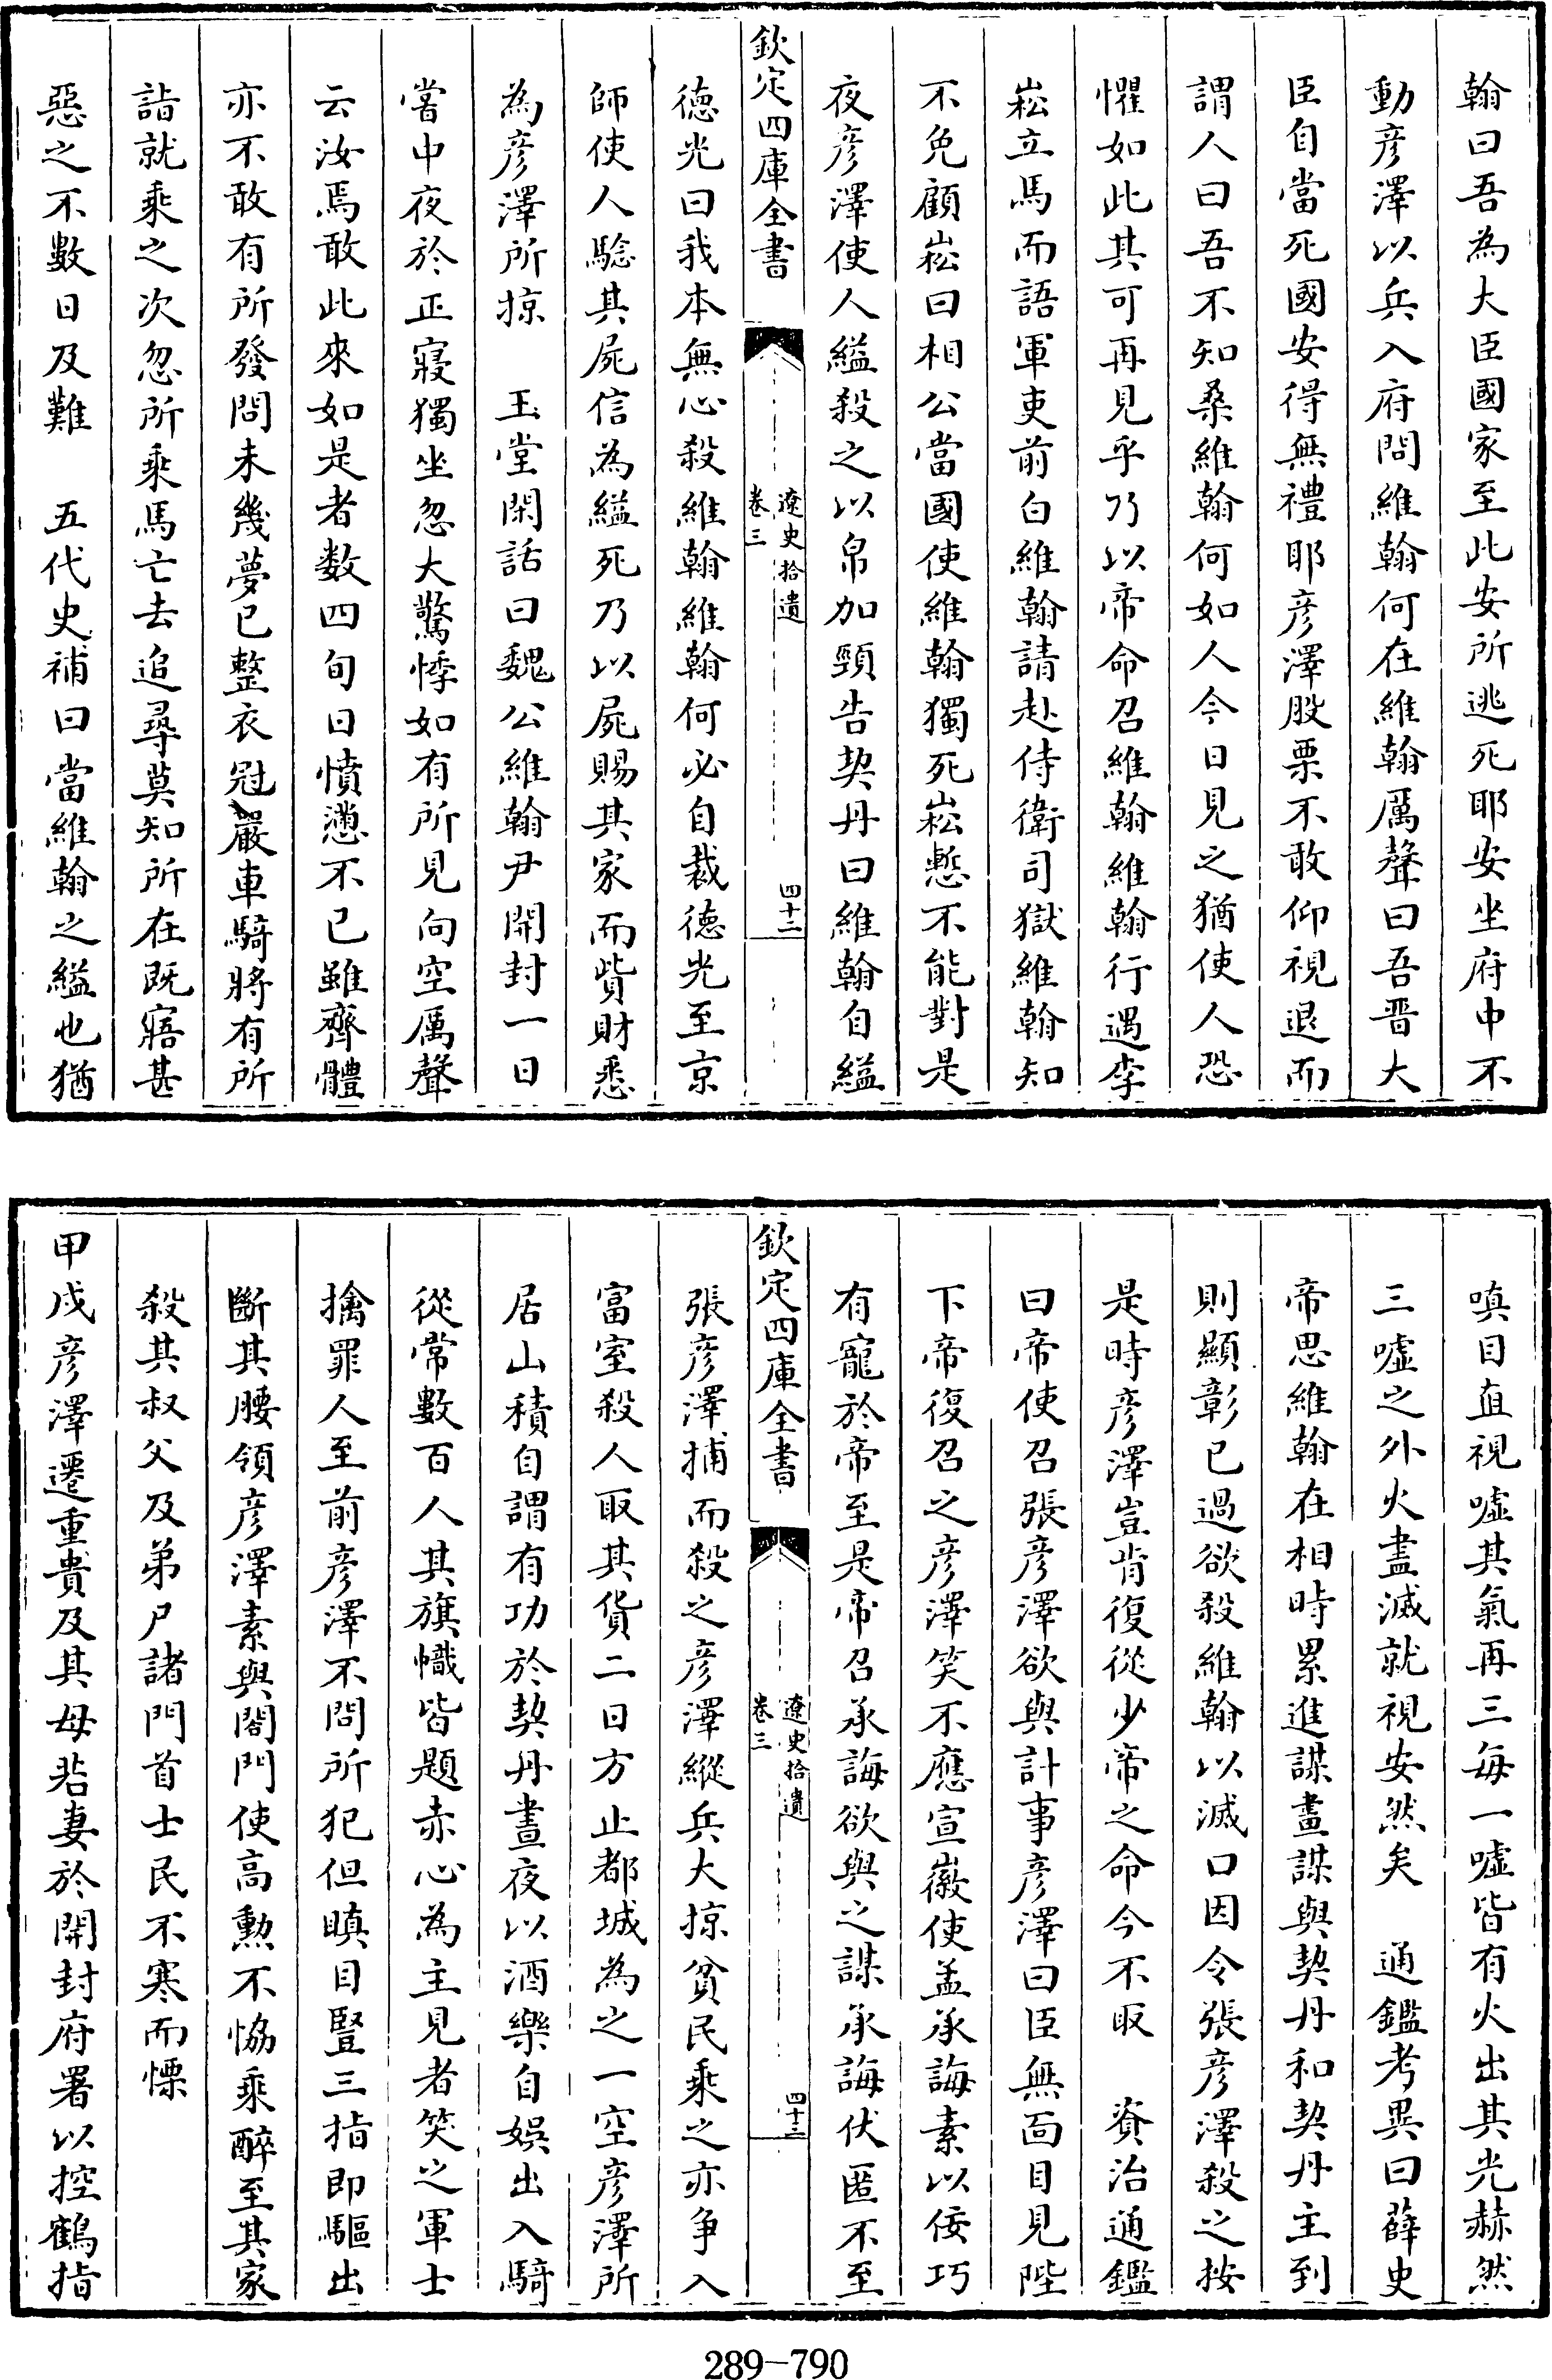 翰曰吾為大臣國家至此安所逃死耶安坐府中不
動彦澤以兵入府問維翰何在維翰厲聲曰吾晋大
臣自當死國安得無禮耶彦澤股栗不敢仰視退而
謂人曰吾不知桑維翰何如人今日見之猶使人恐
懼如此其可再見乎乃以帝命召維翰維翰行遇李
崧立馬而語軍吏前白維翰請赴侍衛司獄維翰知
不免顧崧曰相公當國使維翰獨死崧慙不能對是
夜彦澤使人縊殺之以帛加頸告契丹曰維翰自縊
欽定四庫全書
遼史拾遺
卷三
四十二
德光曰我本無心殺維翰維翰何必自裁德光至京
師使人騐其屍信為縊死乃以屍賜其家而貲財悉
為彦澤所掠　玉堂閑話曰魏公維翰尹開封一日
嘗中夜於正寢獨坐忽大驚悸如有所見向空厲聲
云汝焉敢此來如是者数四旬日憤懣不已雖齊體
亦不敢有所發問未幾夢已整衣冠嚴車騎將有所
詣就乘之次忽所乘馬亡去追尋莫知所在既寤甚
惡之不數日及難　五代史補曰當維翰之縊也猶
嗔目直視噓其氣再三每一噓皆有火出其光赫然
三噓之外火盡滅就視安然矣　通鑑考異曰薛史
帝思維翰在相時累進謀畫謀與契丹和契丹主到
則顯彰已過欲殺維翰以滅口因令張彦澤殺之按
是時彦澤豈肯復從少帝之命今不取　資治通鑑
曰帝使召張彦澤欲與計事彦澤曰臣無面目見陛
下帝復召之彦澤笑不應宣徽使孟承誨素以佞巧
有寵於帝至是帝召承誨欲與之謀承誨伏匿不至
欽定四庫全書
遼史拾遺
卷三
四十三
張彦澤捕而殺之彦澤縱兵大掠貧民乘之亦争入
富室殺人取其貨二日方止都城為之一空彦澤所
居山積自謂有功於契丹晝夜以酒樂自娱出入騎
從常數百人其旗幟皆題赤心為主見者笑之軍士
擒罪人至前彦澤不問所犯但瞋目豎三指即驅出
斷其腰領彦澤素與閤門使高勲不恊乘醉至其家
殺其叔父及弟尸諸門首士民不寒而慄
甲戌彦澤遷重貴及其母若妻於開封府署以控鶴指
289-790